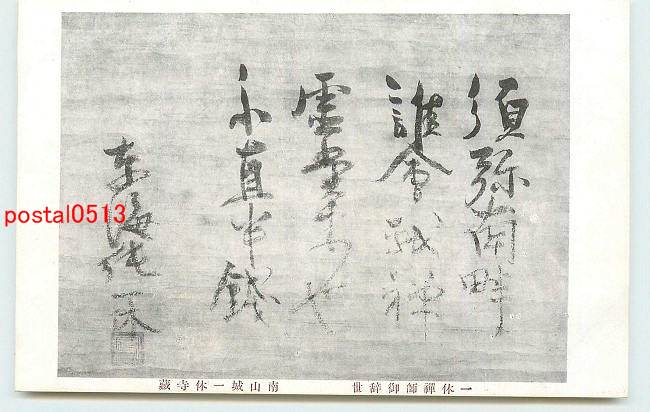 須弥南畔
誰会我禅
虚堂来也
不直半銭
東海純一休
一休禪師御辞世
南山城一休寺藏
postal0513